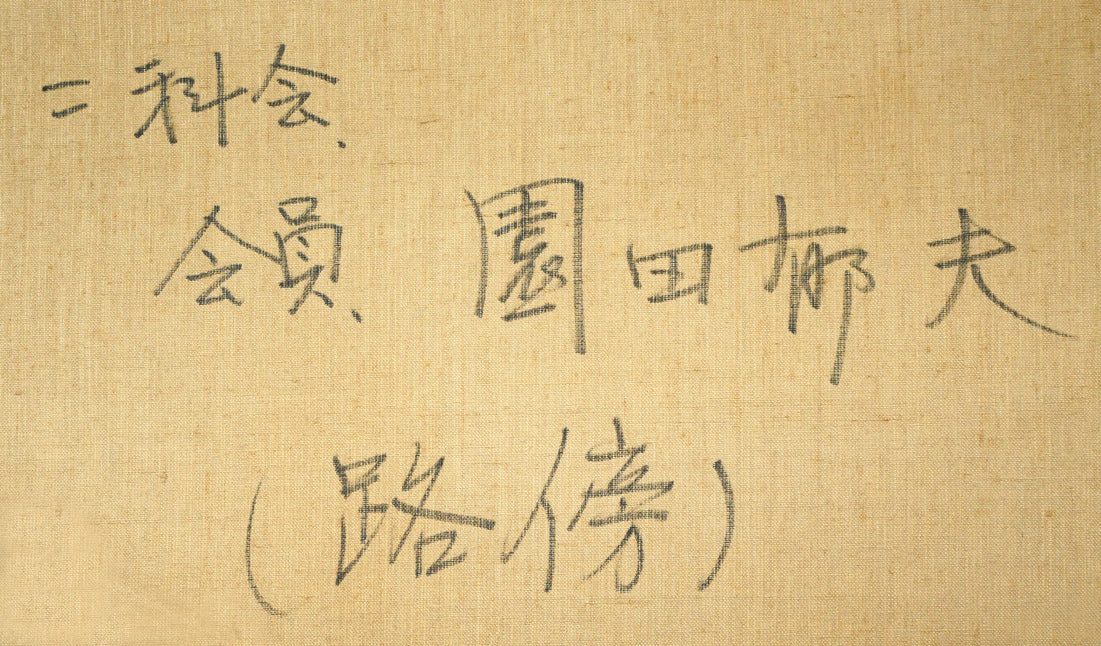 二科会、
会員、 園田郁夫
(路傍)